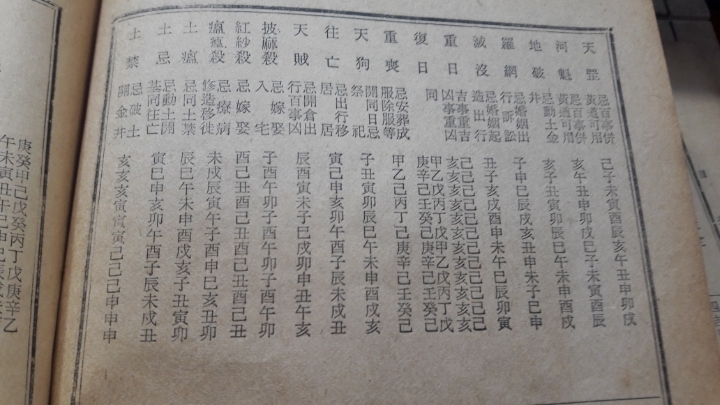 天罡 忌百事併黃道可用 巳子未寅酉辰亥午丑申卯戌
河魁 忌百事併黃道可用 亥午丑申卯戌巳子未寅酉辰
地破 忌動土金井 亥子丑寅卯辰巳午未申酉戌
羅網 忌婚姻出行訴訟 子申巳辰戌亥丑申未子巳申
滅沒 忌婚姻起造出行 丑子亥戌酉申未午巳辰卯寅
重日 吉事重吉凶事重凶 巳巳巳巳巳巳巳巳巳巳巳巳 亥亥亥亥亥亥亥亥亥亥亥亥
復日 同 甲乙戊丙丁戊甲乙戊丙丁戊 庚辛己壬癸己庚辛己壬癸己
重喪 忌安葬成服除服等 甲乙己丙丁己庚辛己壬癸己
天狗 開同日忌祭祀 子丑寅卯辰巳午未申酉戌亥
往亡 忌出行移居 寅巳申亥卯午酉子辰未戌丑
天賊 忌開倉出行百事凶 辰酉寅未子巳戌卯申丑午亥
披麻殺 忌嫁娶入宅 子酉午卯子酉午卯子酉午卯
紅紗殺 忌嫁娶 酉巳丑酉巳丑酉巳丑酉巳丑
瘟㾮殺 忌療病修造移徙 未戌辰寅午子酉申巳亥丑卯
土瘟 忌同土禁 辰巳午未申酉戌亥子丑寅卯
土忌 忌動土開墓同往亡 寅巳申亥卯午酉子辰未戌丑
土禁 忌破土開金井 亥亥亥寅寅寅巳巳巳申申申
庚癸甲己戊癸丙丁戊庚辛乙